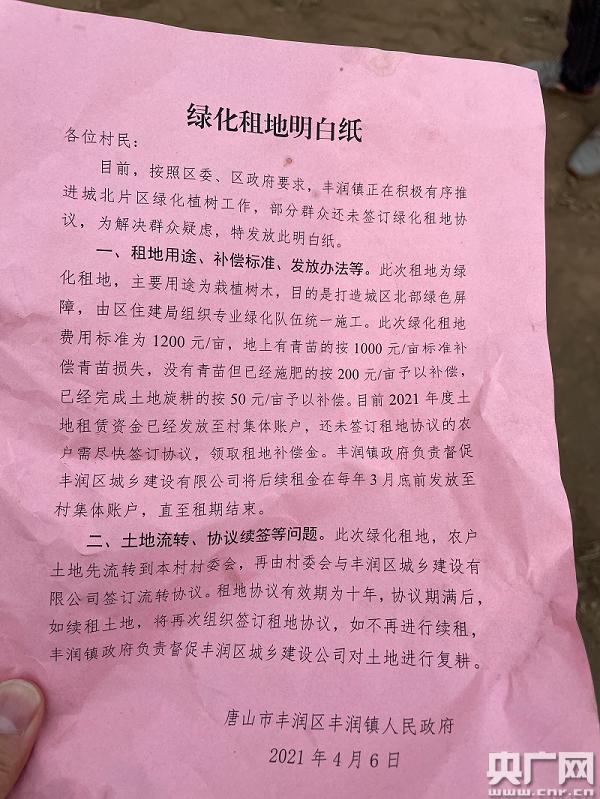 绿化租地明白纸
各位村民：
目前，按照区委、区政府要求，丰润镇正在积极有序推
进城北片区绿化植树工作，部分群众还未签订绿化租地协
议，为解决群众疑虑，特发放此明白纸。
一、租地用途、补偿标准、发放办法等。此次租地为绿
化租地，主要用途为栽植树木，目的是打造城区北部绿色屏
障，由区住建局组织专业绿化队伍统一施工。此次绿化租地
费用标准为 1200 元/亩，地上有青苗的按 1000 元/亩标准补
偿青苗损失，没有青苗但已经施肥的按 200 元/亩予以补偿，
已经完成土地旋耕的按 50 元/亩予以补偿。目前 2021 年度土
地租赁资金已经发放至村集体账户，还未签订租地协议的农
户需尽快签订协议，领取租地补偿金。丰润镇政府负责督促
丰润区城乡建设有限公司将后续租金在每年 3 月底前发放至
村集体账户，直至租期结束。
二、土地流转、协议续签等问题。此次绿化租地，农户
土地先流转到本村村委会，再由村委会与丰润区城乡建设有
限公司签订流转协议。租地协议有效期为十年，协议期满后，
如续租土地，将再次组织签订租地协议，如不再进行续租，
丰润镇政府负责督促丰润区城乡建设公司对土地进行复耕。
唐山市丰润区丰润镇人民政府
2021 年 4 月 6 日
央广网
www.cnr.cn